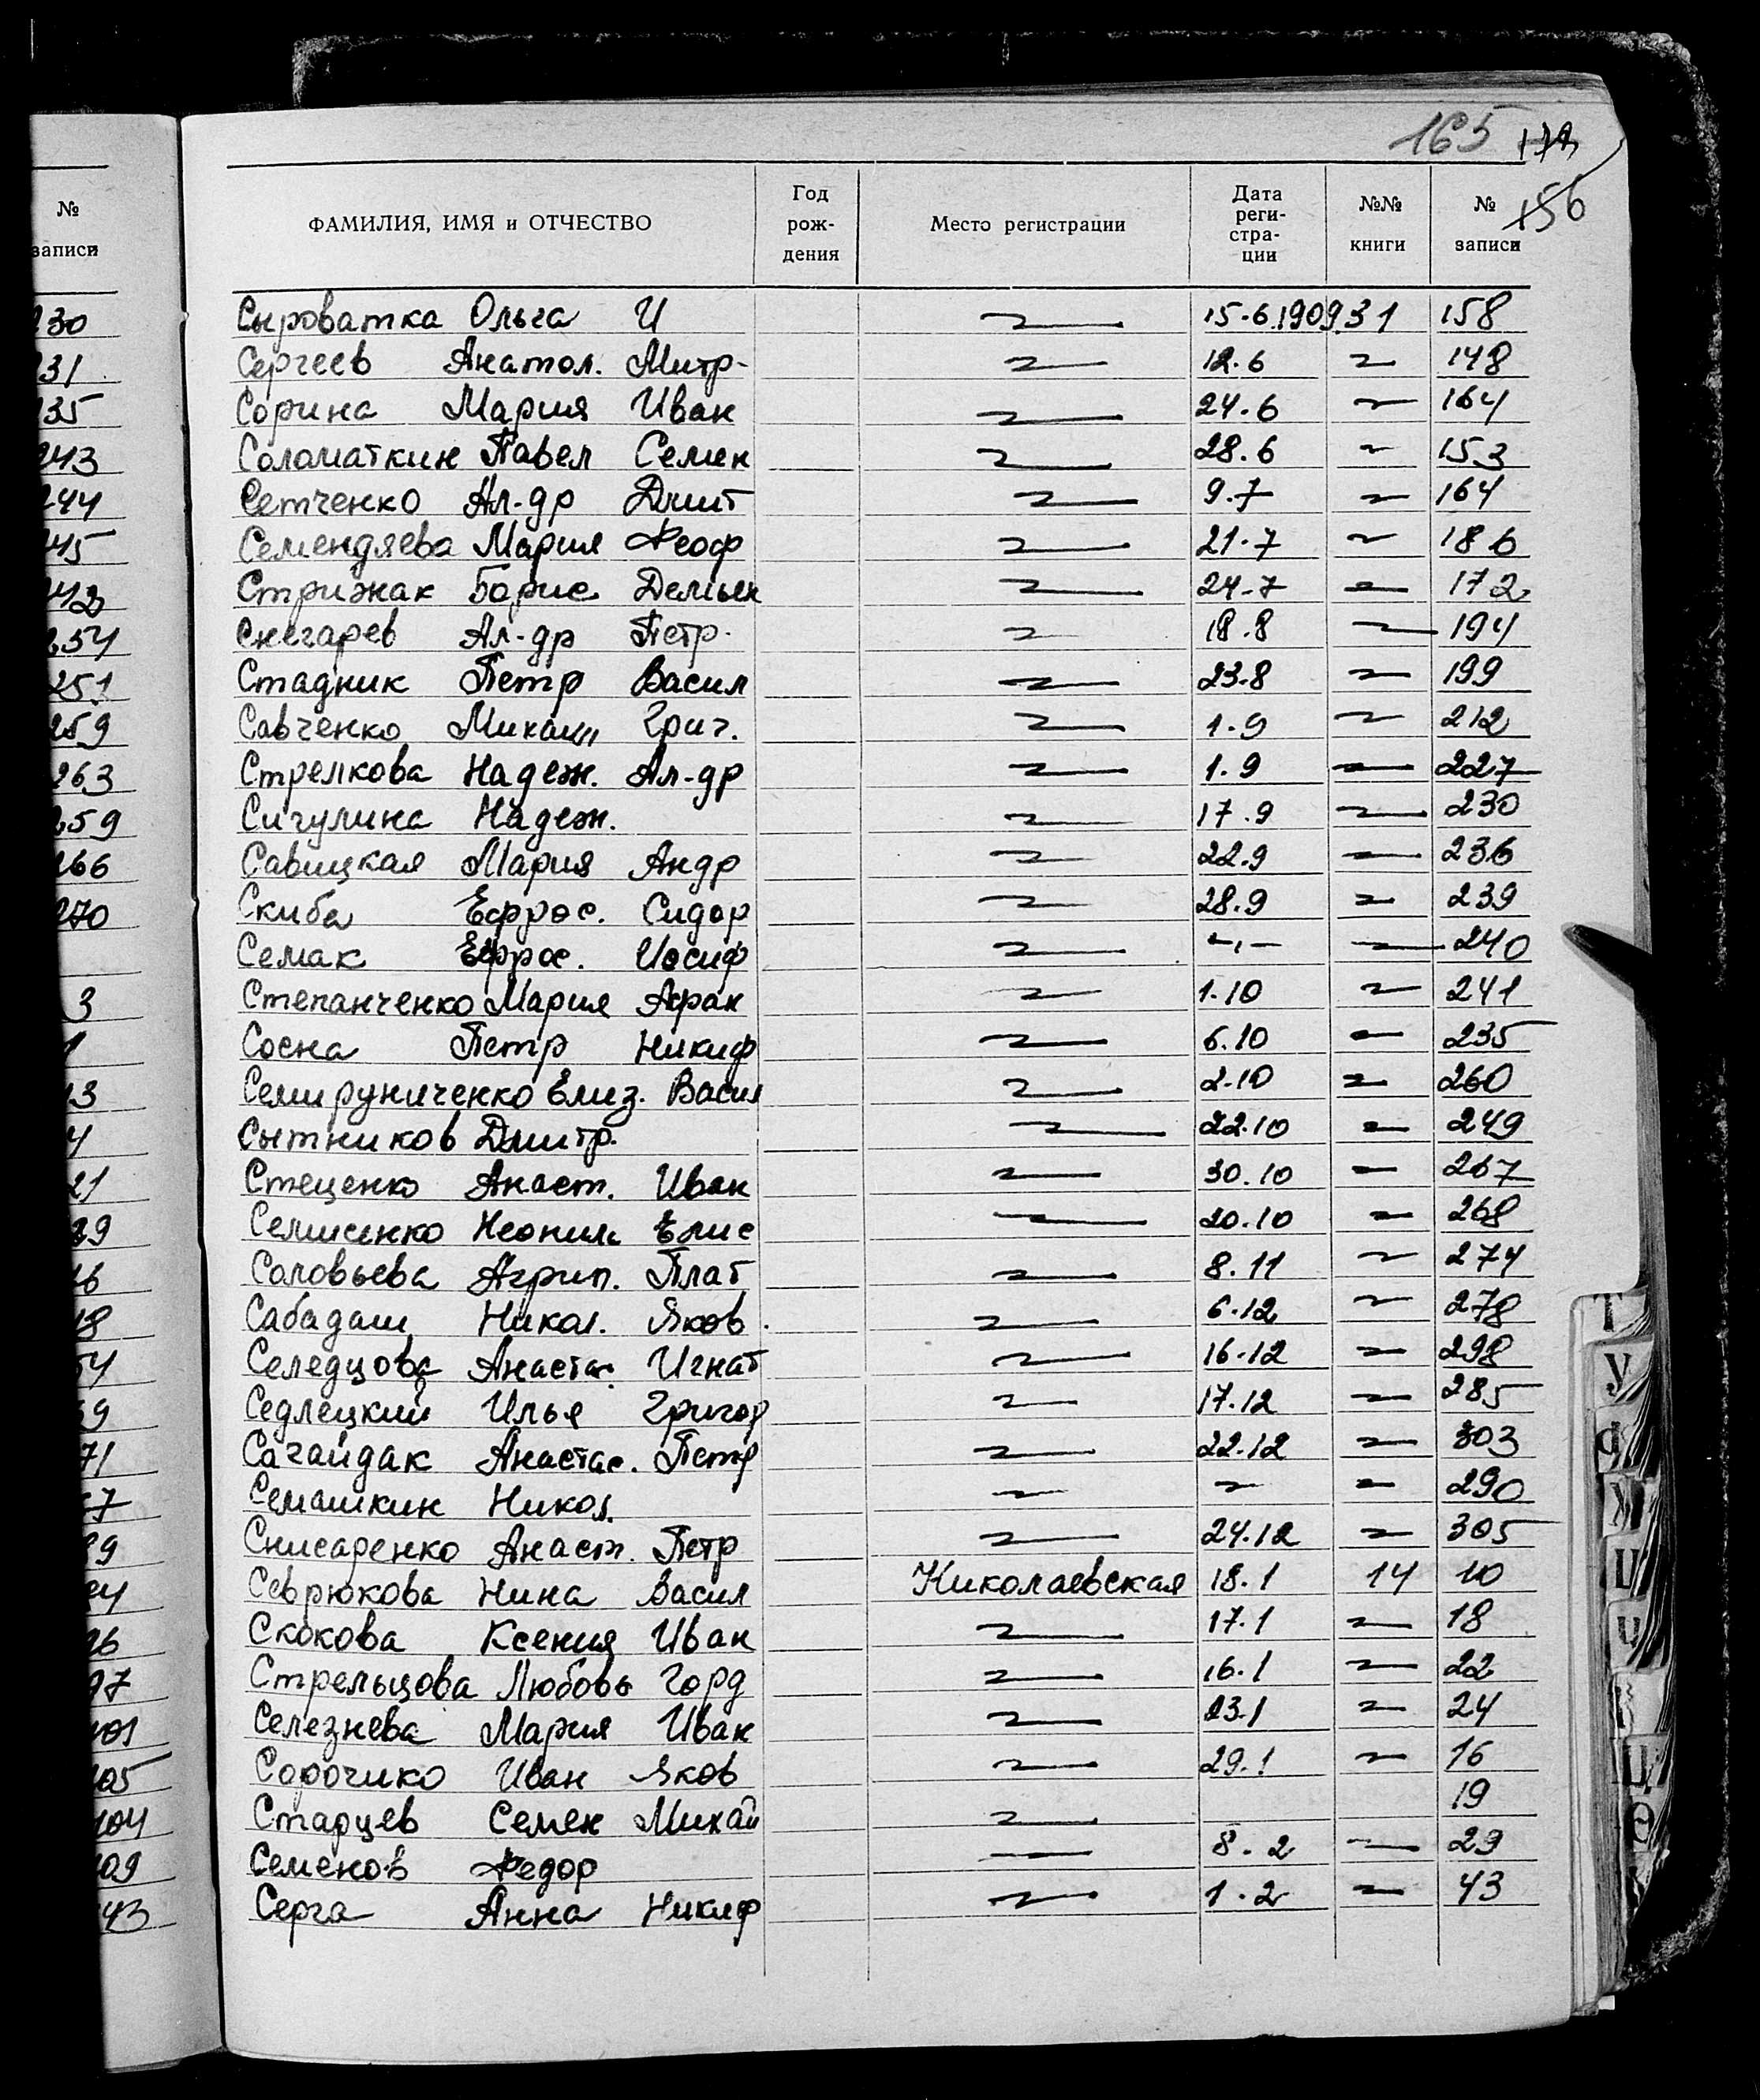 165
156
№
записи
ФАМИЛИЯ, ИМЯ и ОТЧЕСТВО Год рождения Место регистрации Дата регистрации №№ книги № записи
Сыроватка Ольга И 15.6.1909 31 158
Сергеев Анатол. Митр- 12.6 148
Сорина Мария Иван 24.6 164
Соломаткин Павел Семен 28.6 153
Сетченко Ал-др Дмит 9.7 164
Семендяева Мария Феоф 21.7 186
Стрижак Борис Демьян 24.7 172
Снегарев Ал-др Петр. 18.8 194
Стадник Петр Васил 23.8 199
Савченко Михаил Григ. 1.9 212
Стрелкова Надеж. Ал-др 1.9 227
Сигулина Надеж. 17.9 230
Савицкая Мария Андр 22.9 236
Скиба Ефрос. Сидор 28.9 239
Семак Ефрос. Иосиф -"- 240
Степанченко Мария Афан 1.10 241
Сосна Петр Никиф 6.10 235
Семируниченко Елиз. Васил 2.10 260
Сытников Дмитр. 22.10 249
Стеценко Анаст. Иван 30.10 267
Семисенко Неонил Елис 20.10 268
Соловьева Агрип. Плат 8.11 274
Сабадаш Никол. Яков. 6.12 278
Селедцова Анастас. Игнат 16.12 298
Седлецкий Илья Григор 17.12 285
Сагайдак Анастас. Петр 22.12 303
Семашкин Никол. 290
Снисаренко Анаст. Петр 24.12 305
Севрюкова Нина Васил Николаевская 18.1 14 10
Скокова Ксения Иван 17.1 18
Стрельцова Любовь Горд 16.1 22
Селезнева Мария Иван 23.1 24
Сорочико Иван Яков 29.1 16
Старцев Семен Михай 19
Семенов Федор 8.2 29
Серга Анна Никиф 1.2 43